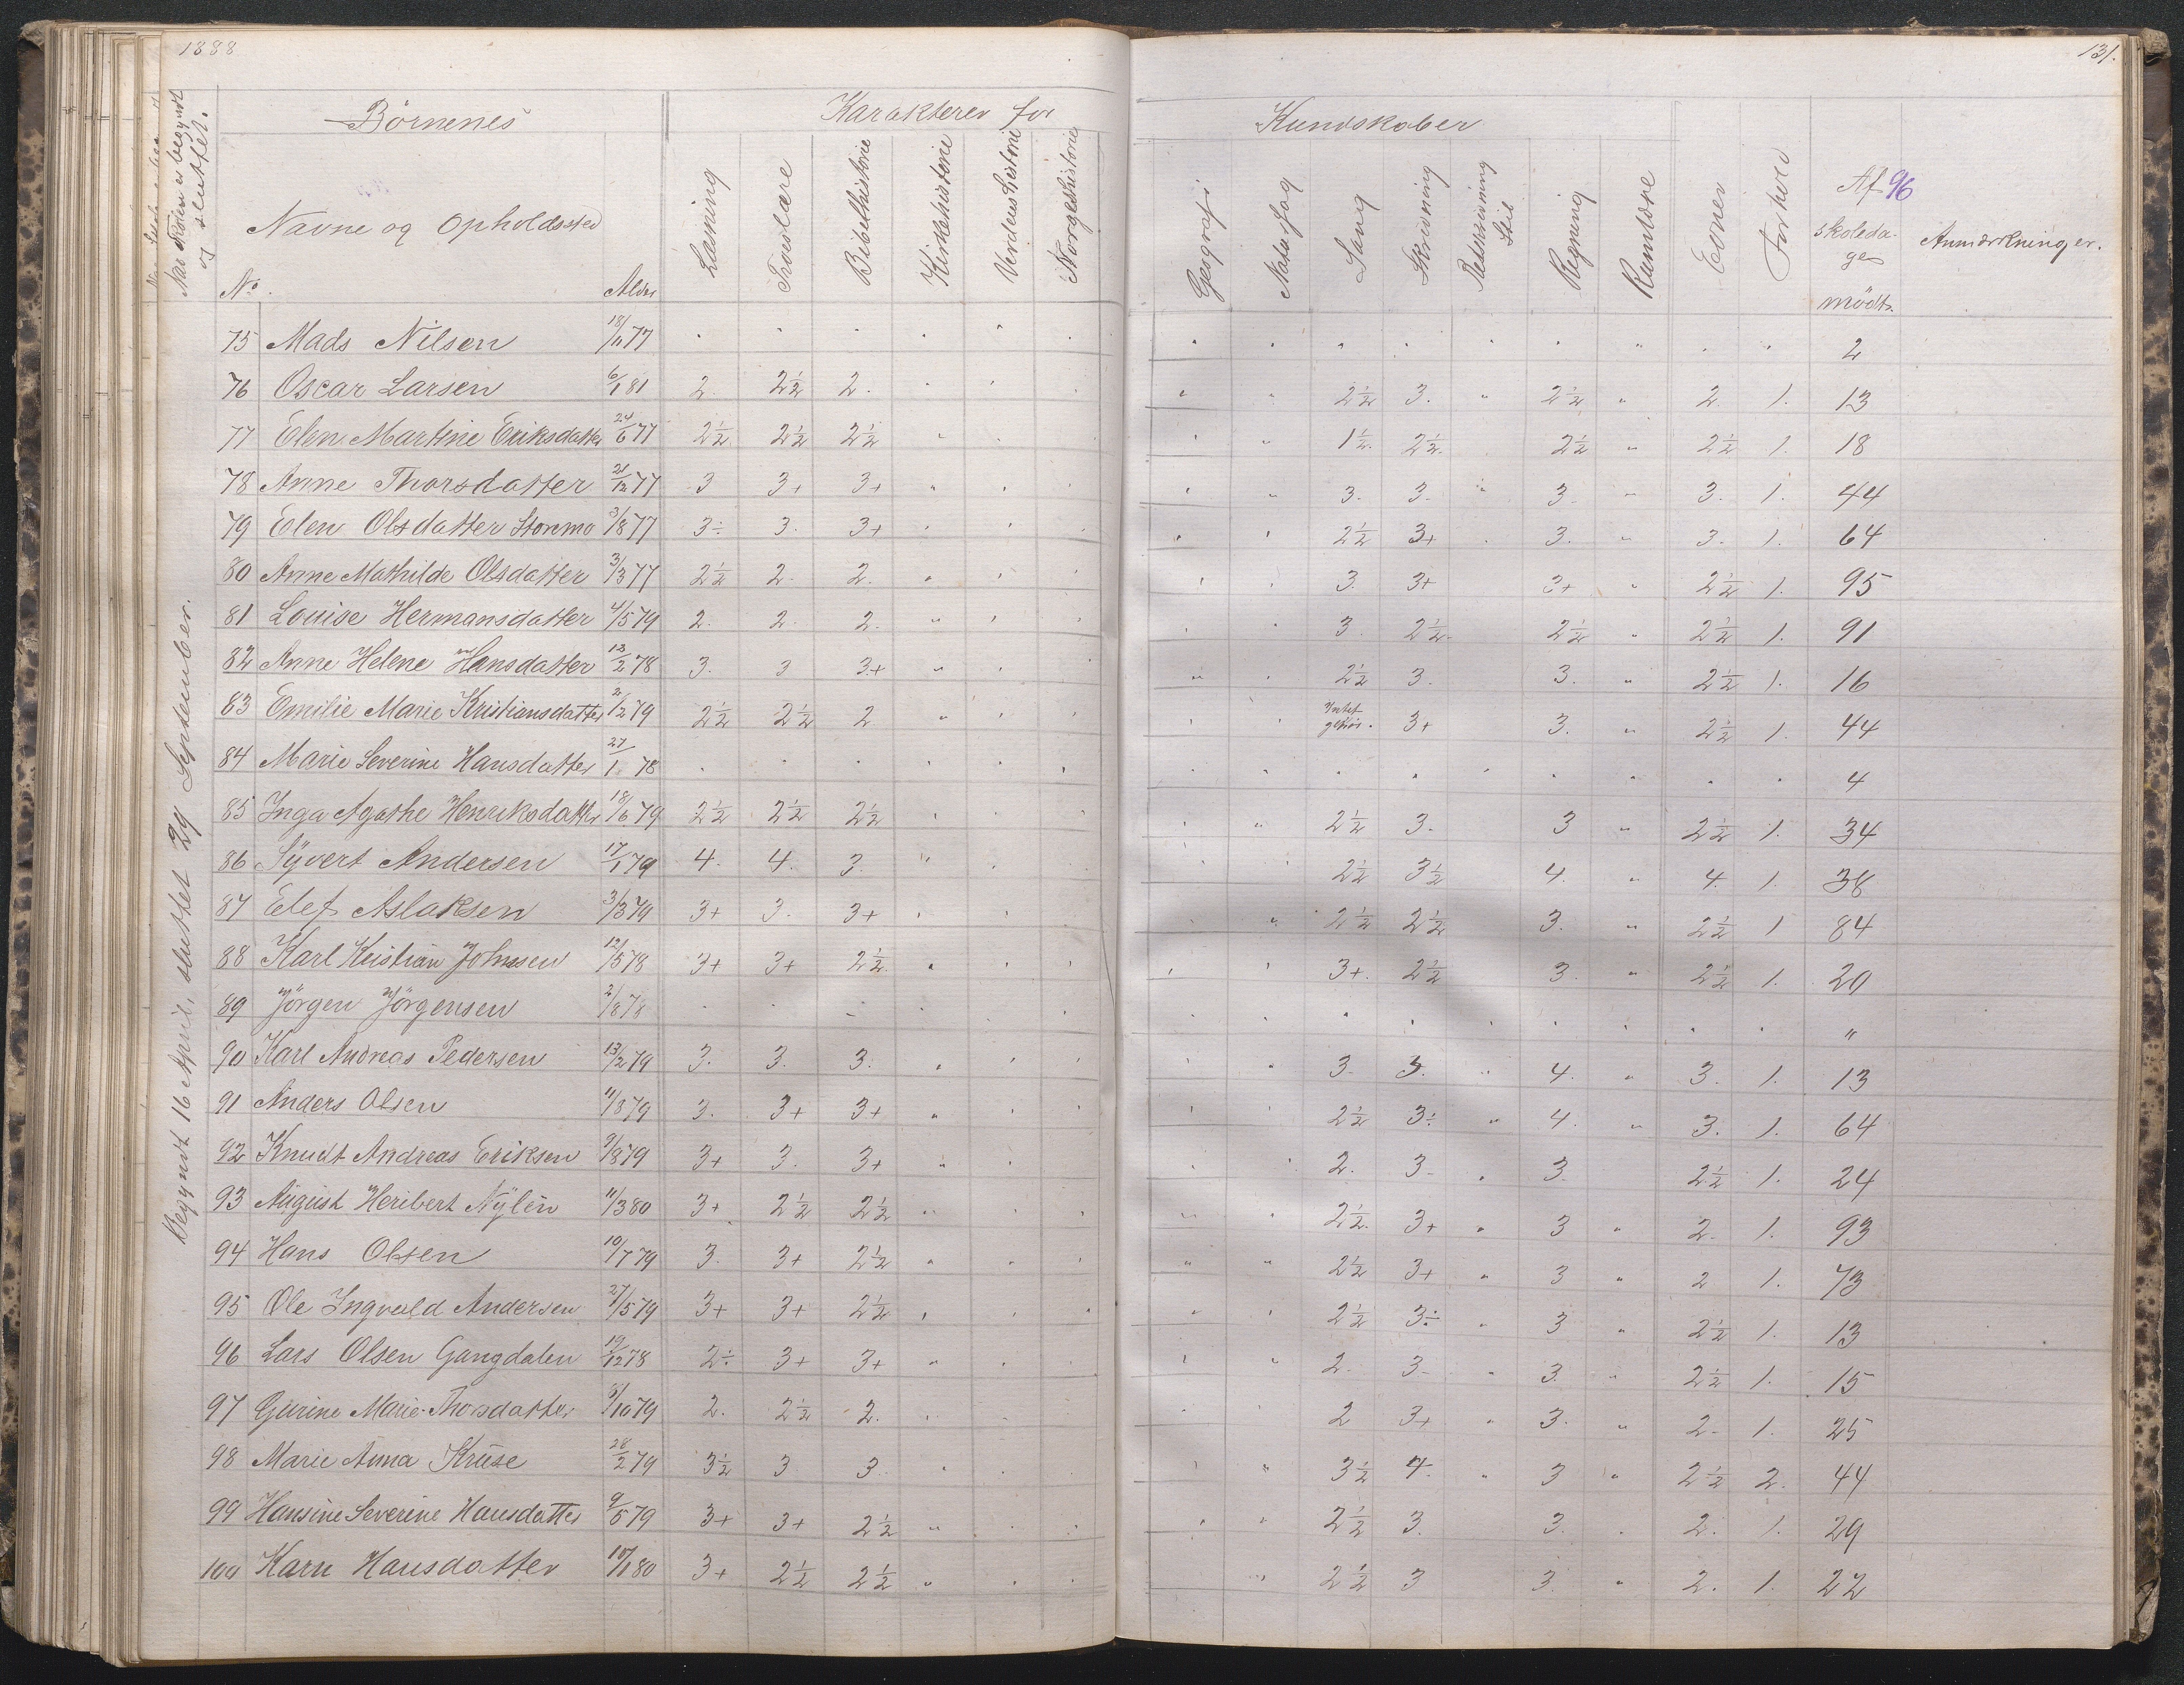 1888
131.
Naar Skolen er begyndt
og sluttet.
Begyndt 16 April, sluttet 29 September.
Børnenes
Karakterer for
Kundskaber
No. Navne og Opholdssted Alder Læsning Troeslære Bibelhistorie Kirkehistorie Verdenshistorie Norgeshistorie Geografi Naturfag Sang Skrivning Retskrivning Stil Regning Rumlære Evner Forhold Af 96 skoledage mødt. Anmærkninger.
75 Mads Nilsen 18/11 77 " " " " " " " " " " " " " " " 2
76 Oscar Larsen 6/1 81 2. 2½ 2. " " " " " 2½ 3. " 2½ " 2 1. 13
77 Elen Martine Eriksdatter 24/6 77 2½ 2½ 2½ " " " " " 1½. 2½. 2½ " 2½ 1. 18
78 Anne Thorsdatter 21/12 77 3 3+ 3+ " " " " 3. 3. " 3. " 3. 1. 44
79 Elen Olsdatter Stormo 3/8 77 3÷ 3. 3+ " " " " " 2½ 3+ " 3. " 3. 1. 64
80 Anne Mathilde Olsdatter 3/3 77 2½ 2. 2. " " " " " 3. 3+ 3+ " 2½ 1. 95
81 Louise Hermansdatter 4/5 79 2. 2. 2. " " " " " 3. 2½. 2½ " 2½ 1. 91
82 Anne Helene Hansdatter 12/2 78 3. 3 3+ " " " " 2½ 3. 3. " 2½ 1. 16
83 Emilie Marie Kristiansdatter 2/2 79 2½ 2½ 2 " " " " " Intet gehør. 3+ 3. " 2½ 1. 44
84 Marie Severine Hansdatter 27/1 78 " " " " " " " " " " " " " " " 4
85 Inga Agathe Henriksdatter 18/6 79 2½ 2½ 2½ " " " " " 2½ 3. 3 " 2½ 1. 34
86 Syvert Andersen 17/1 79 4. 4. 3. " " " " 2½ 3½ 4. " 4. 1. 38
87 Elef Aslaksen 3/3 79 3+ 3. 3+ " " " " 2½ 2½ 3. " 2½ 1 84
88 Karl Kristian Johnsen 12/5 78 3+ 3+ 2½ " " " " " 3+. 2½ 3. " 2½ 1. 20
89 Jörgen Jörgensen 2/8 78 " " " " " " " " " " " " " " "
90 Karl Andreas Pedersen 13/2 79 3. 3. 3. " " " " " 3. 3. " 4. " 3. 1. 13
91 Anders Olsen 11/8 79 3. 3+ 3+ " " " " " 2½ 3÷ " 4. " 3. 1. 64
92 Knudt Andreas Eriksen 9/8 79 3+ 3. 3+ " " " " 2. 3. " 3. 2½ 1. 24
93 August Heribert Nylén 11/3 80 3+ 2½ 2½ " " " " " 2½. 3+ " 3 " 2. 1. 93
94 Hans Olsen 10/7 79 3. 3+ 2½ " " " " " 2½ 3+ " 3 " 2 1. 73
95 Ole Ingvald Andersen 27/5 79 3+ 3+ 2½ " " " " " 2½ 3÷ " 3 " 2½ 1. 13
96 Lars Olsen Gangdalen 19/12 78 2÷ 3+ 3+ " " " " " 2. 3. " 3. " 2½ 1. 15
97 Gurine Marie Thorsdatter 5/10 79 2. 2½ 2. " " " " 2 3+ " 3. " 2. 1. 25
98 Marie Anna Kruse 28/2 79 3½ 3 3. " " " " " 3½ 4. " 3 " 2½ 2. 44
99 Hansine Severine Hansdatter 9/5 79 3+ 3+ 2½ " " " " " 2½ 3. 3. " 2. 1. 29
100 Karn Hansdatter 10/1 80 3+ 2½ 2½ " " " " 2½ 3 3. " 2. 1. 22